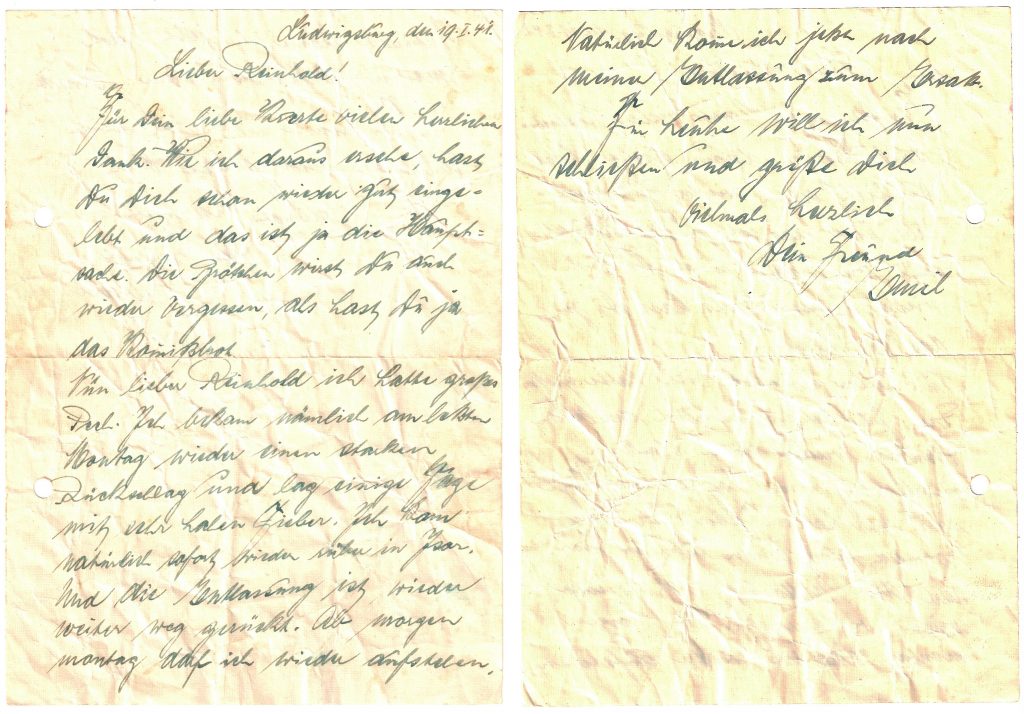 Ludwigsburg, den 19.I.41.
Lieber Reinhold!
Für Dein liebe Karte vielen herzlichen
Dank. Wie ich daraus ersehe, hast
Du Dich schon wieder gut einge-
lebt und das ist ja die Haupt-
sache. Die wirst Du auch
wieder vergessen, als hast Du ja
das
Nun lieber Reinhold ich hatte großes
Pech. Ich bekam nämlich am letzten
Montag wieder einen starken
Rückschlag und lag einige Tage
mit sehr hohen Fieber. Ich kam
natürlich sofort wieder rüber in
Und die Entlassung ist wieder
weiter weg gerückt. Ab morgen
montag darf ich wieder aufstehen.
Natürlich komm ich jetzt nach
meiner Entlassung zum Ersatz.
Für heute will ich nun
schließen und grüße Dich
vielmals herzlich
Dein Freund
Emil